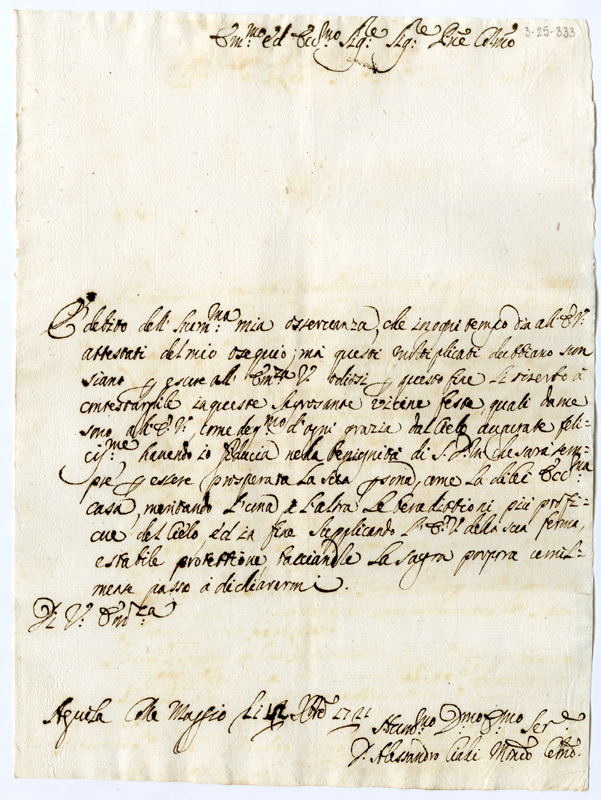 Em.mo ed Ecc.mo Sig.re Sig.re Pne Colmo
3-25-333
E debito dell' hum.ma mia osservanza, che in ogni tempo dia all' E.V.
attestati del mio ossequio; mà questi moltiplicati dubbiano non
siano p essere all' Em.za V. odiosi p questo fine li riserbo à
contestarglile in queste Sagrosante vicine feste quali da me
sono all' E.V. come deg.mo d'ogni grazia dal Cielo augurate feli-
cis.me havendo io fiducia nella benignità di S.D.M che sarà sem-
pre p essere prosperata la sua psona, come la di lei Ecc.ma
casa, meritando l'una e l'altra le benedittioni più profi-
cue del Cielo ed in fine supplicando l' E.V. della sua ferma,
e stabile protettione, bacciandole la sagra porpora umil-
mente passo à dichiararmi
Di V. Em.za
Aquila Colle Maggio li Xbre 1721
Hum.mo D.mo Ser.e
D. Alessandro